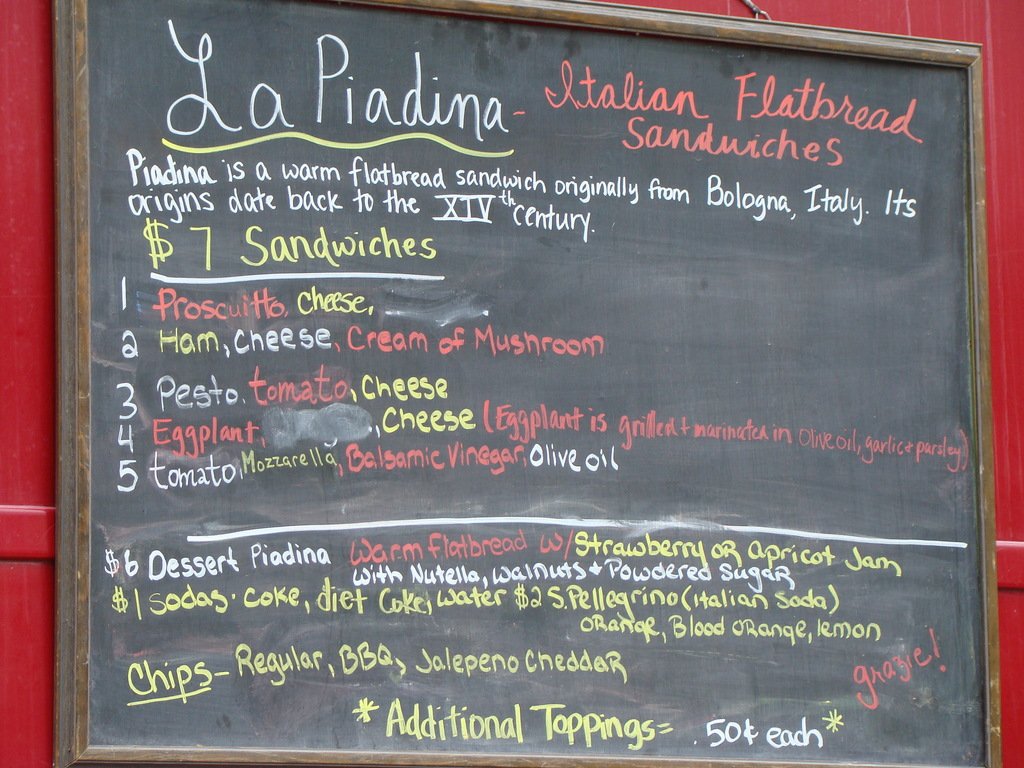 La Piadina - Italian Flatbread
Sandwiches
Piadina is a warm flatbread sandwich originally from Bologna, Italy. Its
origins date back to the XIVth century.
$7 Sandwiches
1 Proscuitto, cheese,
2 Ham, cheese, Cream of Mushroom
3 Pesto, tomato, cheese
4 Eggplant, Cheese (Eggplant is grilled + marinated in olive oil, garlic + parsley)
5 tomato, Mozzarella, Balsamic Vinegar, Olive oil
$6 Dessert Piadina Warm Flatbread w/ Strawberry or apricot Jam
with Nutella, walnuts + Powdered Sugar
$1 sodas. coke, diet coke, water $2 S. Pellegrino (italian soda)
orange, Blood orange, lemon
Chips - Regular, BBQ, Jalepeno Cheddar
grazie!
*Additional Toppings = .50¢ each*